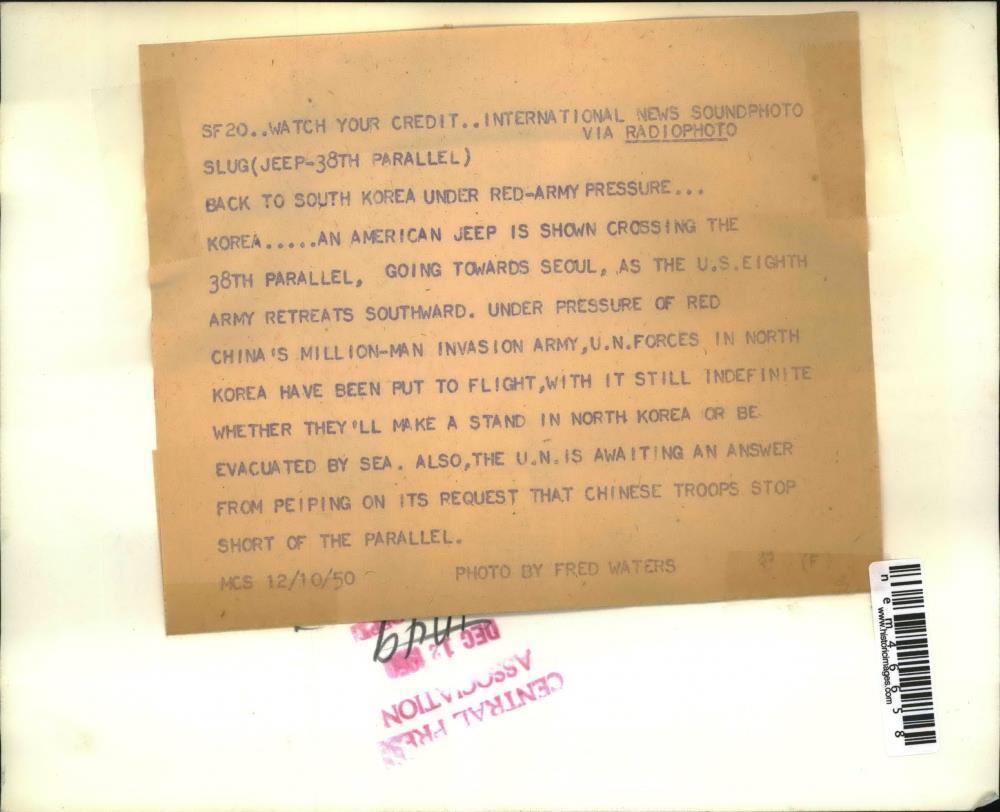 SF20..WATCH YOUR CREDIT..INTERNATIONAL NEWS SOUNDPHOTO
VIA RADIOPHOTO
SLUG(JEEP-38TH PARALLEL)
BACK TO SOUTH KOREA UNDER RED-ARMY PRESSURE...
KOREA.....AN AMERICAN JEEP IS SHOWN CROSSING THE
38TH PARALLEL, GOING TOWARDS SEOUL, AS THE U.S.EIGHTH
ARMY RETREATS SOUTHWARD. UNDER PRESSURE OF RED
CHINA'S MILLION-MAN INVASION ARMY,U.N.FORCES IN NORTH
KOREA HAVE BEEN PUT TO FLIGHT,WITH IT STILL INDEFINITE
WHETHER THEY'LL MAKE A STAND IN NORTH KOREA OR BE
EVACUATED BY SEA. ALSO,THE U.N.IS AWAITING AN ANSWER
FROM PEIPING ON ITS REQUEST THAT CHINESE TROOPS STOP
SHORT OF THE PARALLEL.
MCS 12/10/50 PHOTO BY FRED WATERS (F)
DEC 12
CENTRAL PRESS
ASSOCIATION
nem46658
www.historicimages.com